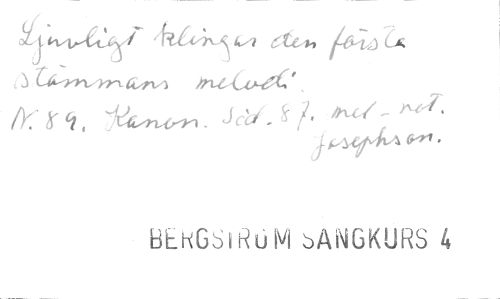 Ljuvligt klingar den första
stämmans melodi.
N. 89. Kanon. Sid. 87. mel-not.
Josephson.
BERGSTRÖM SÅNGKURS 4